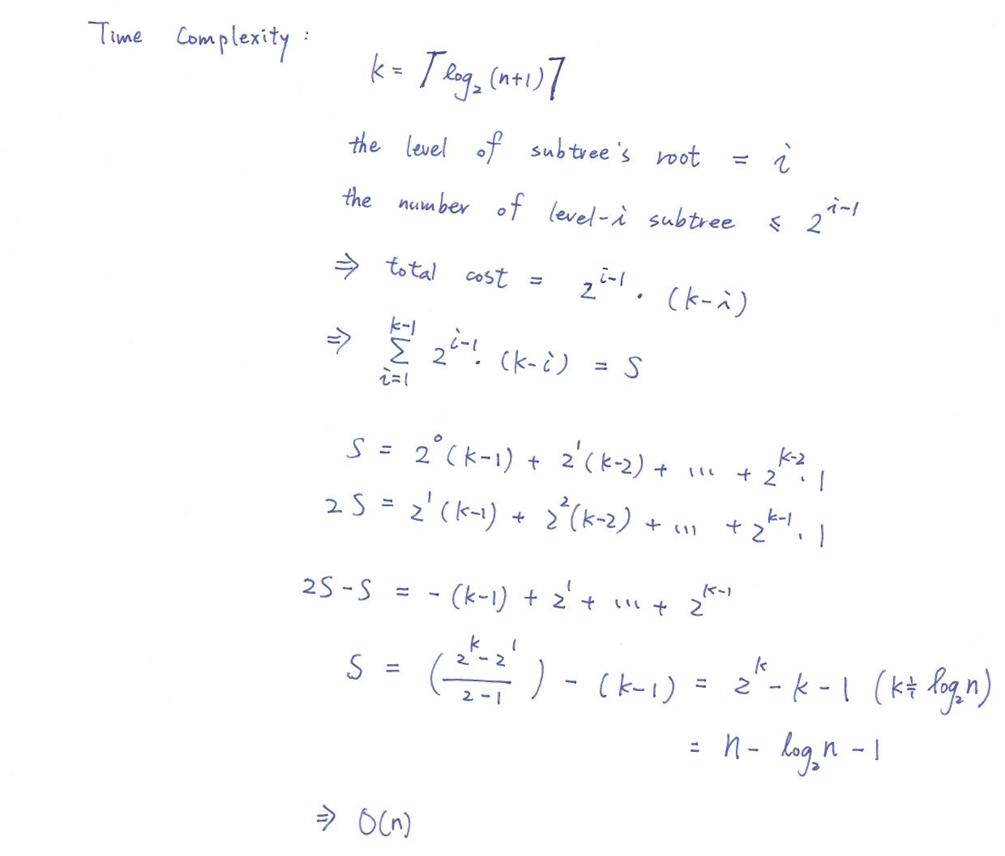 Time Complexity :
k = ⌈log₂(n+1)⌉
the level of subtree's root = i
the number of level-i subtree ≤ 2^(i-1)
⇒ total cost = 2^(i-1) · (k-i)
⇒ ∑_(i=1)^(k-1) 2^(i-1) · (k-i) = S
S = 2⁰(k-1) + 2¹(k-2) + ... + 2^(k-2) · 1
2S = 2¹(k-1) + 2²(k-2) + ... + 2^(k-1) · 1
2S - S = -(k-1) + 2¹ + ... + 2^(k-1)
S = ((2^k - 2¹)/(2-1)) - (k-1) = 2^k - k - 1 (k≒log₂n)
= n - log₂n - 1
⇒ O(n)